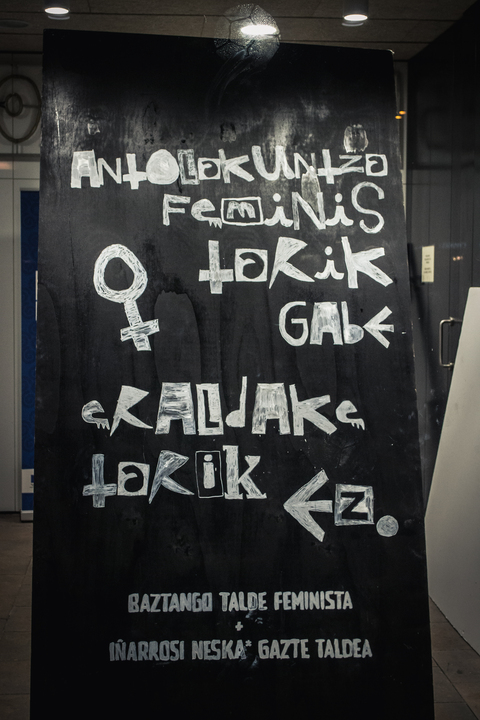 ANtOLaKUNtZa
FemiNiS
taRiK
GAbE
eRALdAKe
taRiK EZ.
BAZTANGO TALDE FEMINISTA
+
IÑARROSI NESKA* GAZTE TALDEA